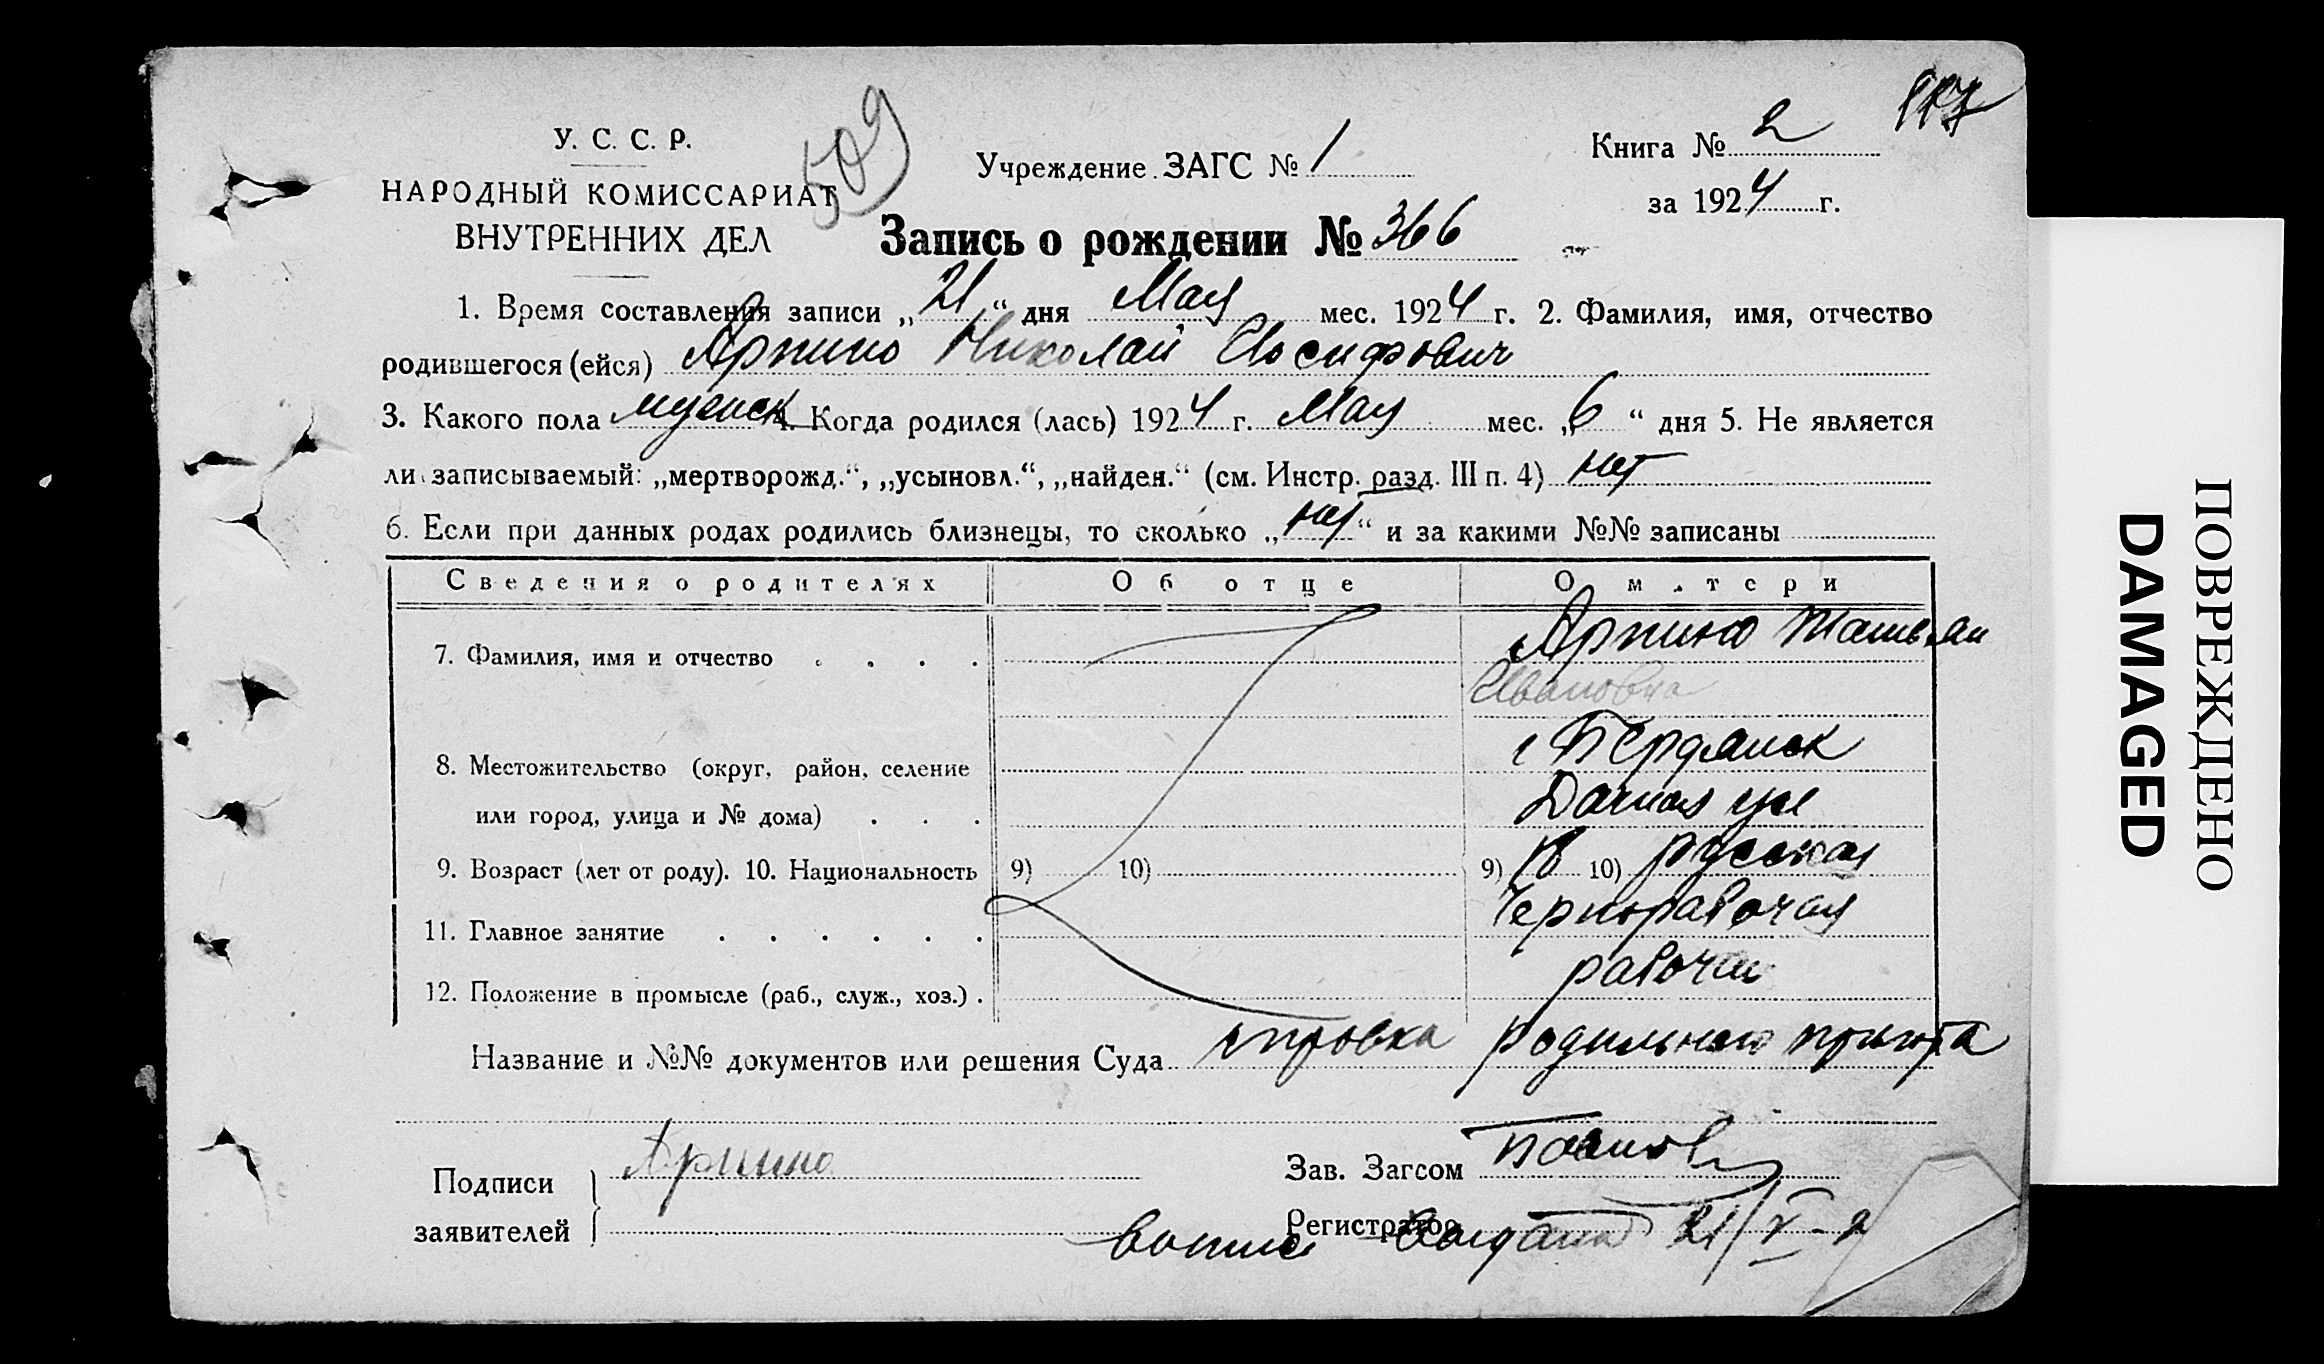 509
У. С. С. Р.
НАРОДНЫЙ КОМИССАРИАТ
ВНУТРЕННИХ ДЕЛ
Учреждение ЗАГС № 1
Книга № 2
за 1924 г.
Запись о рождении № 366
1. Время составления записи „21“ дня Мая мес. 1924 г. 2. Фамилия, имя, отчество
родившегося (ейся) Арпино Николай Иосифович
3. Какого пола мужск 4. Когда родился (лась) 1924 г. Мая мес. „6“ дня 5. Не является
ли записываемый: „мертворожд.“, „усыновл.“, „найден.“ (см. Инстр. разд. III п. 4) нет
6. Если при данных родах родились близнецы, то сколько „нет“ и за какими №№ записаны
Сведения о родителях Об отце О матери
7. Фамилия, имя и отчество . . . . Арпино Татьяна
Ивановна
8. Местожительство (округ, район, селение г Бердянск
или город, улица и № дома) . . . Дачная ул
9. Возраст (лет от роду). 10. Национальность 9) 10) 9) 18 10) русская
11. Главное занятие . . . . . . Чернорабочая
12. Положение в промысле (раб., служ., хоз.) . рабочая
Название и №№ документов или решения Суда справка родильного приюта
Подписи
заявителей
Арпино
Зав. Загсом
Регистратор
выпис выдана 21/V-2
ПОВРЕЖДЕНО
DAMAGED